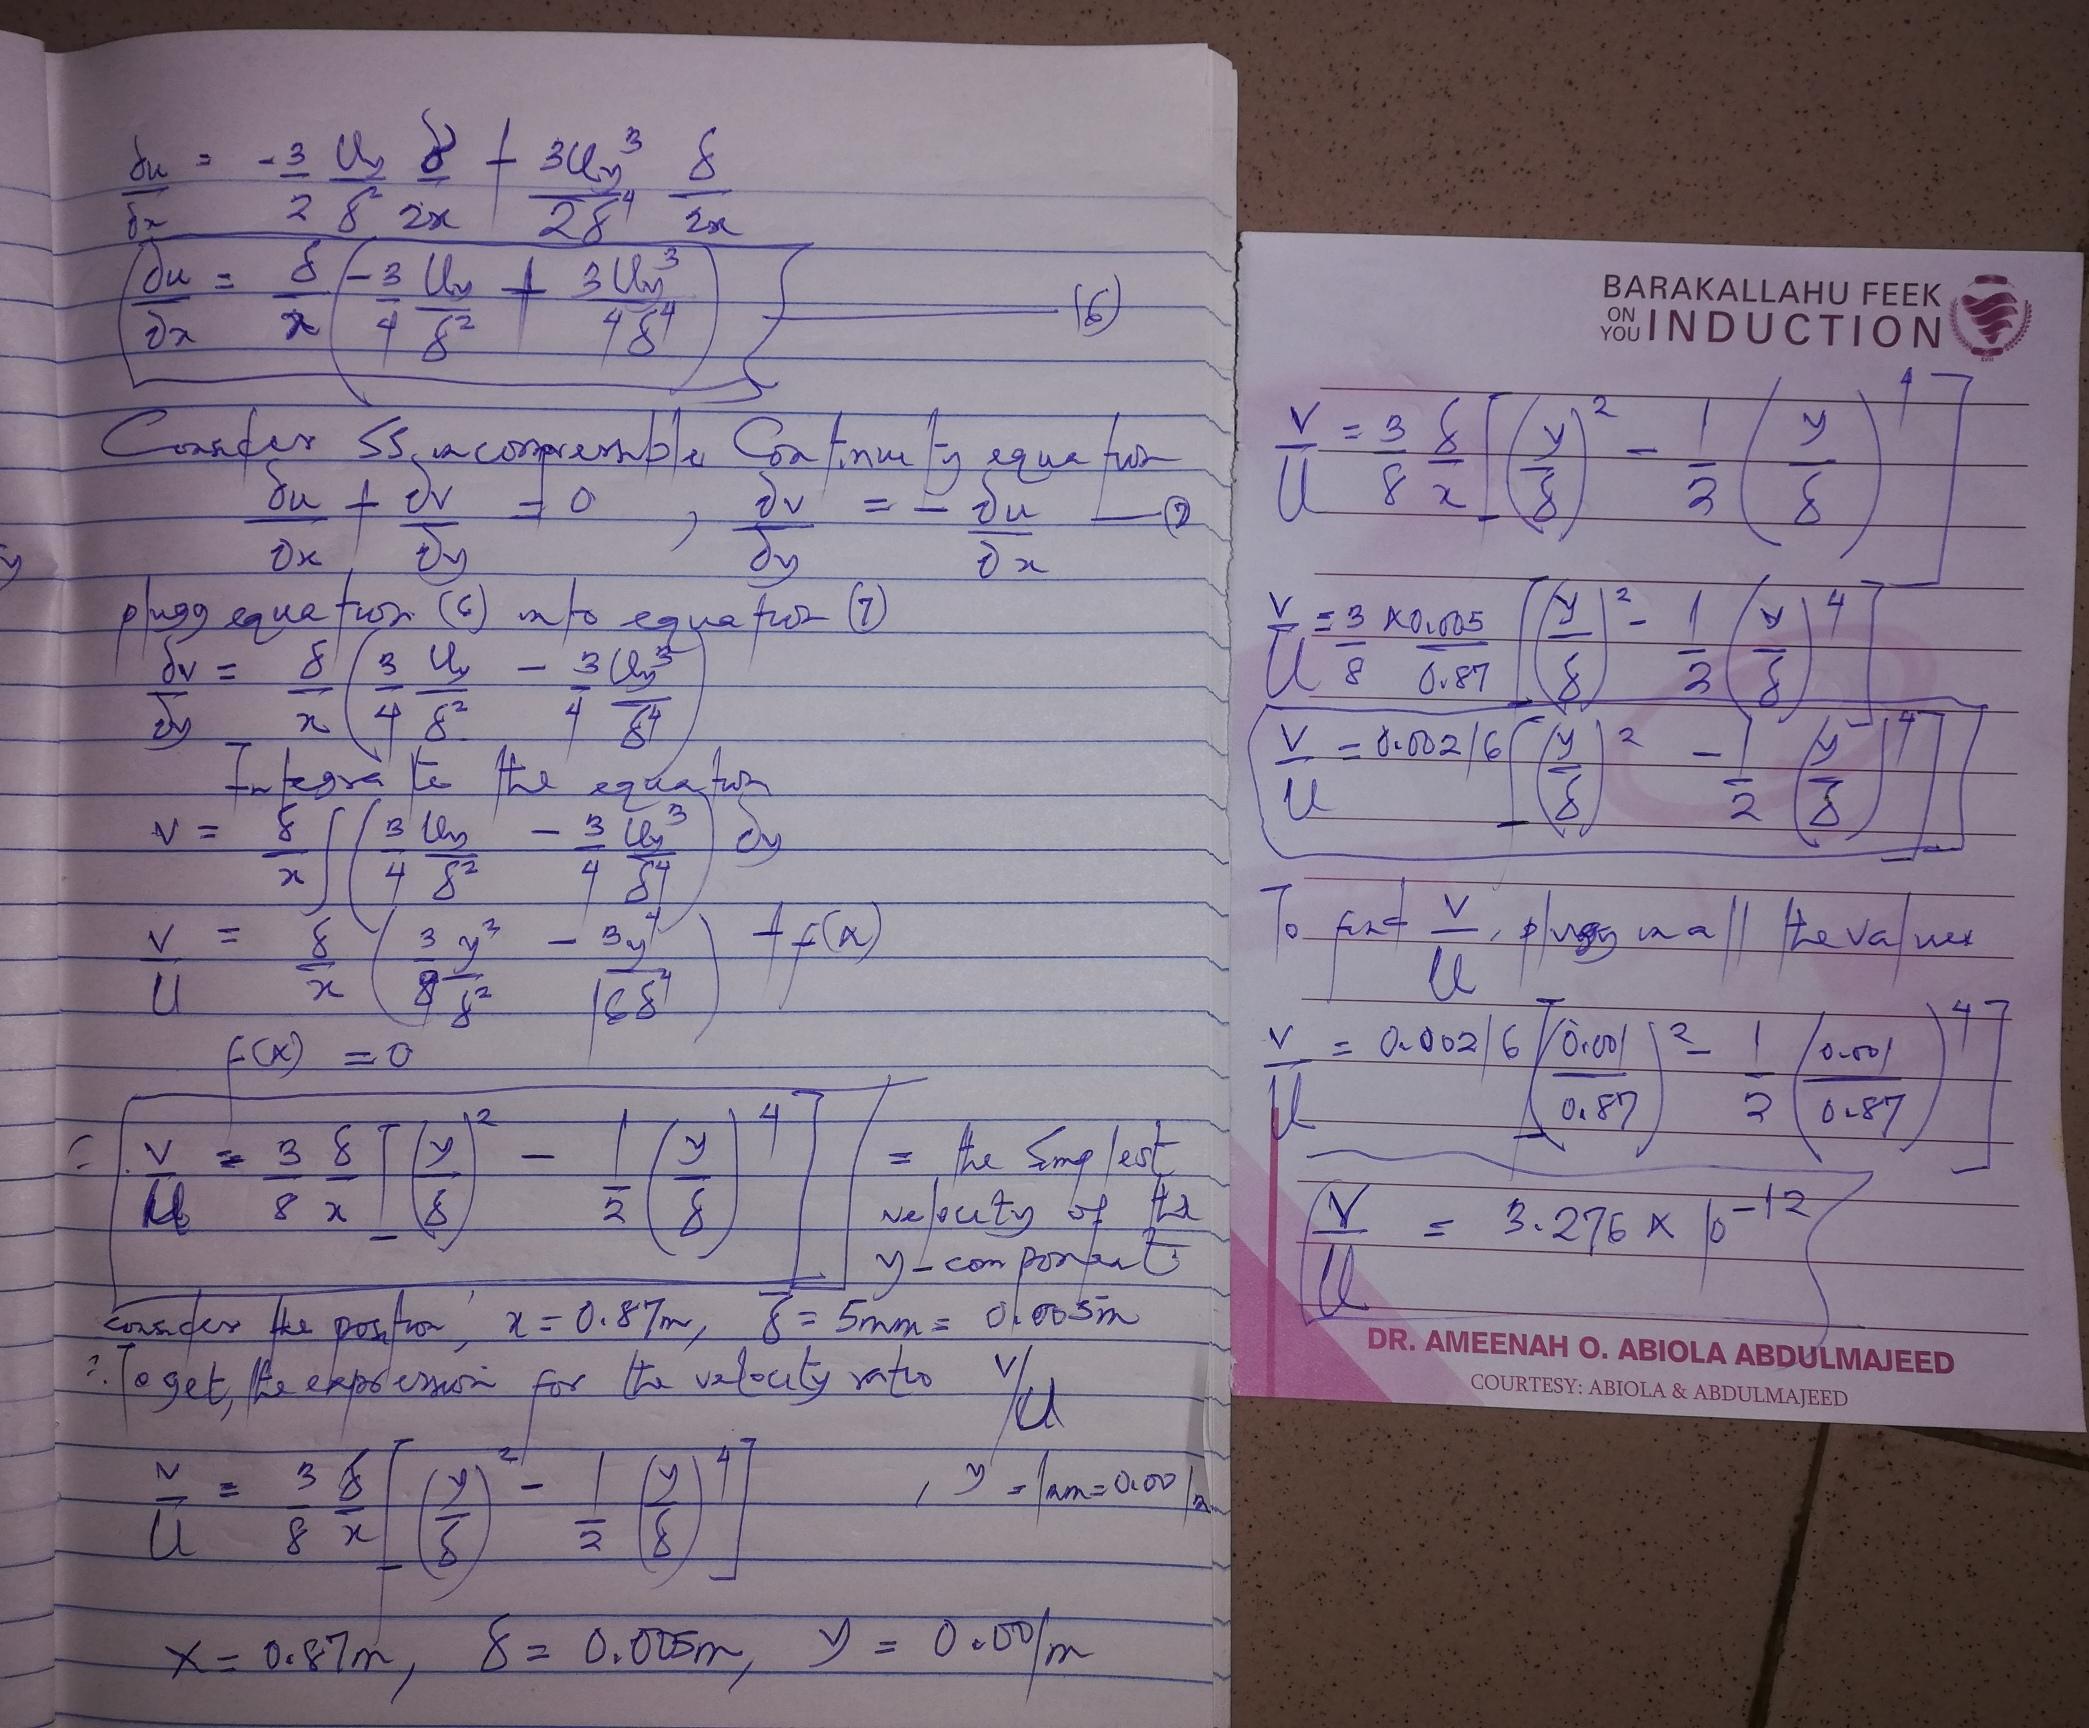 δu/δx = -3/2 Uy/δ² δ/2x + 3Uy³/2δ⁴ δ/2x
∂u/∂x = δ/x (-3/4 Uy/δ² + 3Uy³/4δ⁴) — (6)
Consider SS, incompressible Continuity equation
∂u/∂x + ∂v/∂y = 0 , ∂v/∂y = - ∂u/∂x — (7)
plugg equation (6) into equation (7)
∂v/∂y = δ/x (3/4 Uy/δ² - 3/4 Uy³/δ⁴)
Integrate the equation
v = δ/x ∫(3/4 Uy/δ² - 3/4 Uy³/δ⁴) ∂y
v/U = δ/x (3/8 y²/δ² - 3y⁴/16δ⁴) + f(x)
f(x) = 0
= v/U = 3/8 δ/x [(y/δ)² - 1/2 (y/δ)⁴] = the Simplest
velocity of the
y-component
consider the position, x = 0.87m, δ = 5mm = 0.005m
∴ To get, the expression for the velocity ratio v/U
v/U = 3/8 δ/x [(y/δ)² - 1/2 (y/δ)⁴] , y = 1mm = 0.001m
x = 0.87m, δ = 0.005m, y = 0.001m
BARAKALLAHU FEEK
ON YOU INDUCTION
v/U = 3/8 δ/x [(y/δ)² - 1/2 (y/δ)⁴]
v/U = 3/8 × 0.005/0.87 [(y/δ)² - 1/2 (y/δ)⁴]
v/U = 0.00216 [(y/δ)² - 1/2 (y/δ)⁴]
To find v/U, plugg in all the values
v/U = 0.00216 [(0.001/0.87)² - 1/2 (0.001/0.87)⁴]
v/U = 3.276 × 10⁻¹²
DR. AMEENAH O. ABIOLA ABDULMAJEED
COURTESY: ABIOLA & ABDULMAJEED